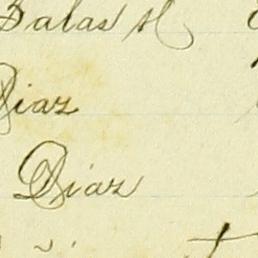 Salas M
Diaz
Diaz